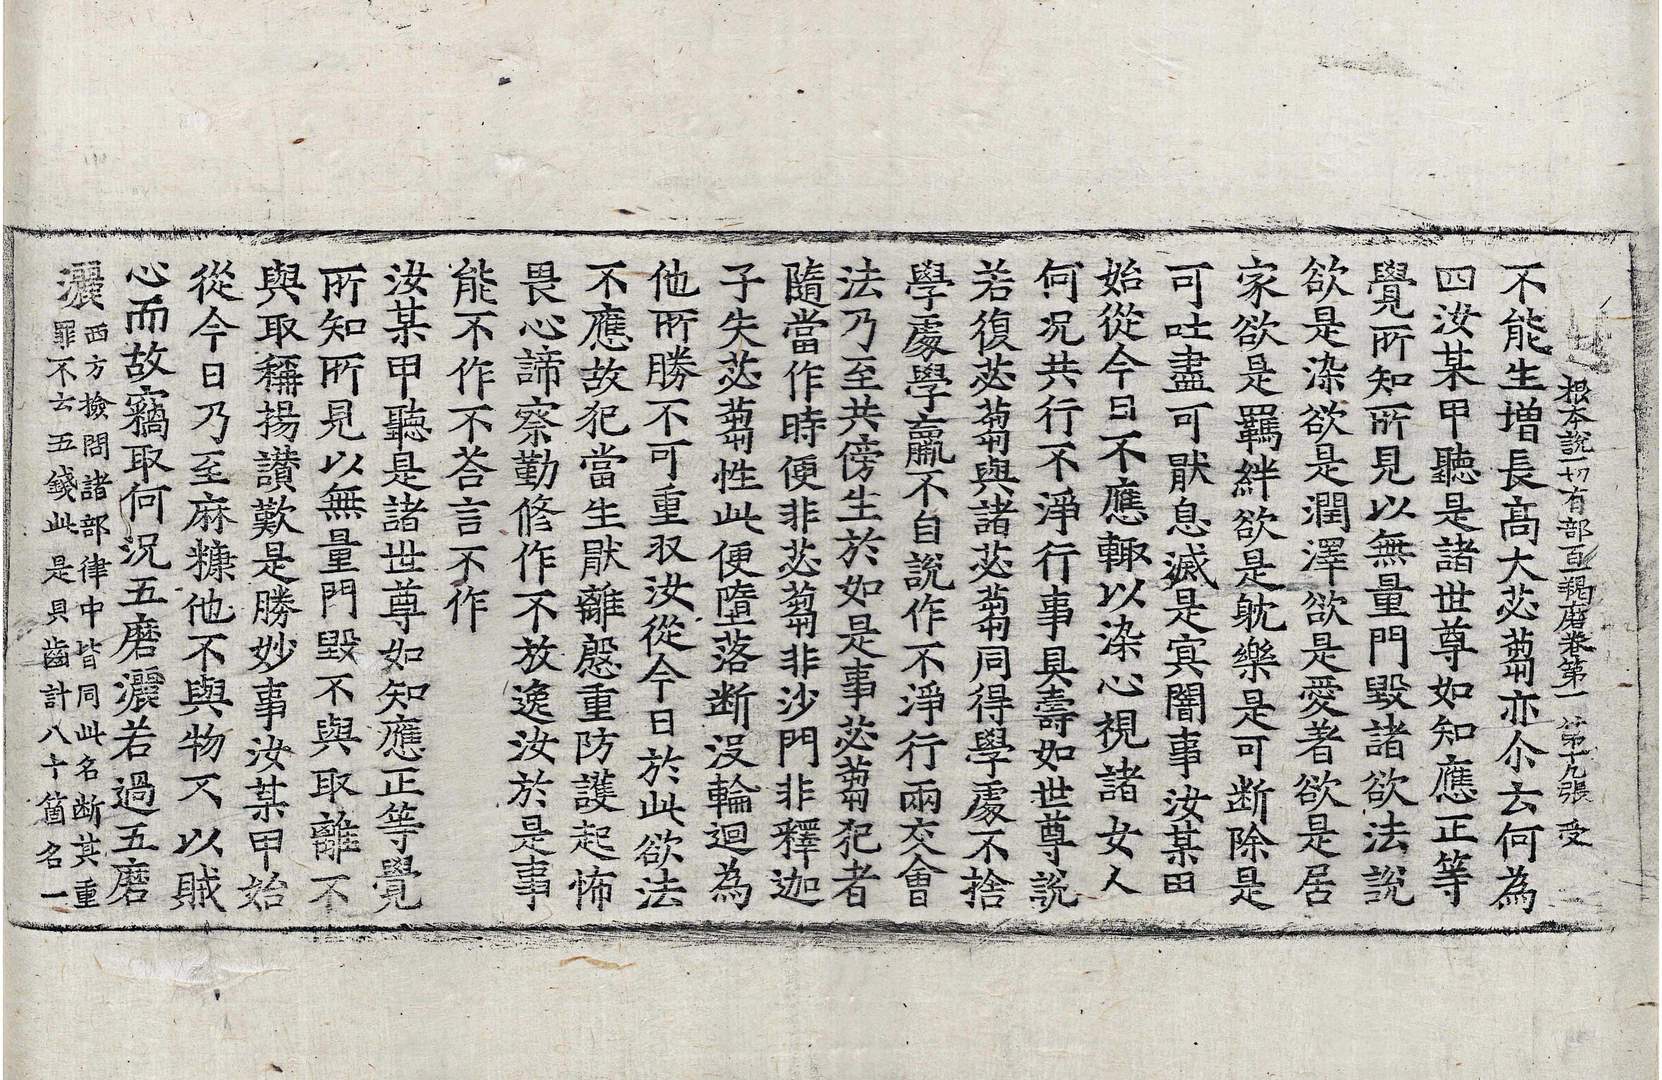 根本說一切有部百一羯磨卷第一 第十九張 受
不能生增長高大苾蒭亦尒云何為
四汝某甲聽是諸世尊如知應正等
覺所知所見以無量門毀諸欲法說
欲是染欲是潤澤欲是愛著欲是居
家欲是羈絆欲是躭樂是可断除是
可吐盡可猒息滅是冥闇事汝某甲
始從今日不應輙以染心視諸女人
何況共行不淨行事具壽如世尊說
若復苾蒭與諸苾蒭同得學處不捨
學處學羸不自說作不淨行兩交會
法乃至共傍生於如是事苾蒭犯者
隨當作時便非苾蒭非沙門非釋迦
子失苾蒭性此便墮落断没輪迴為
他所勝不可重収汝從今日於此欲法
不應故犯當生猒離慇重防護起怖
畏心諦察勤修作不放逸汝於是事
能不作不荅言不作
汝某甲聽是諸世尊如知應正等覺
所知所見以無量門毀不與取離不
與取稱揚讃歎是勝妙事汝某甲始
從今日乃至麻糠他不與物不以賊
心而故竊取何況五磨灑若過五磨
灑 西方撿問諸部律中皆同此名断其重
罪不云五錢此是貝齒計八十箇名一